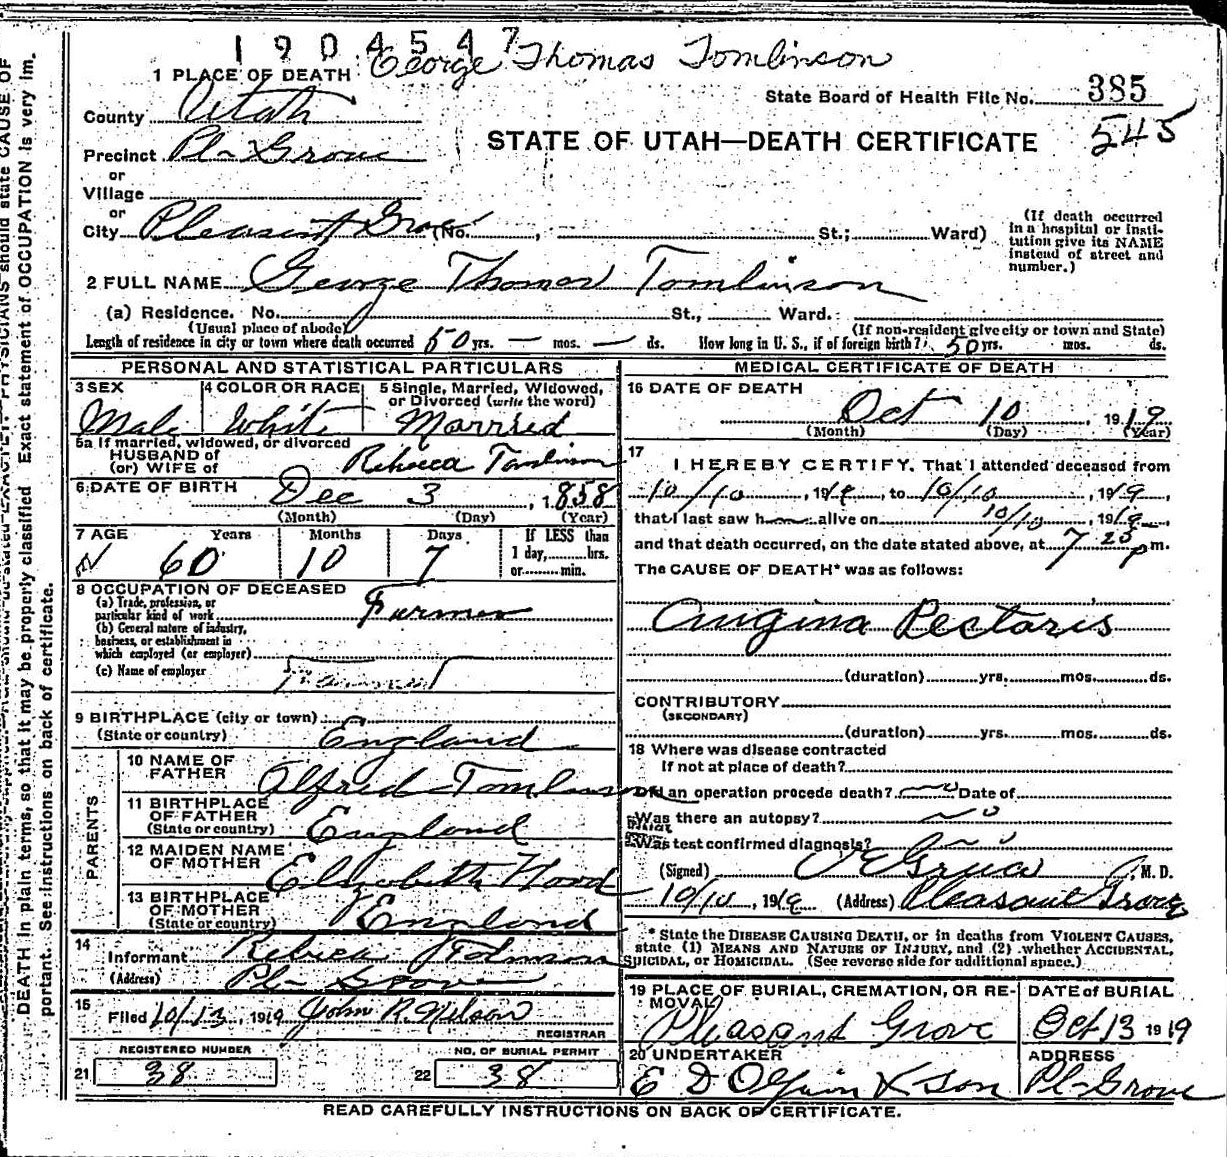 1904547
George Thomas Tomlinson
1 PLACE OF DEATH
State Board of Health File No. 385
County Utah
545
STATE OF UTAH—DEATH CERTIFICATE
Precinct Pl- Grove
or
Village
or
City Pleasant Grove (No. , St.; Ward)
(If death occurred in a hospital or insti-
tution give its NAME
instead of street and
number.)
2 FULL NAME George Thomas Tomlinson
(a) Residence. No. St., Ward.
(Usual place of abode) (If non-resident give city or town and State)
Length of residence in city or town where death occurred 50 yrs. — mos. — ds. How long in U. S., if of foreign birth? 50 yrs. mos. ds.
PERSONAL AND STATISTICAL PARTICULARS
3 SEX
Male
4 COLOR OR RACE
White
5 Single, Married, Widowed,
or Divorced (write the word)
Married
5a If married, widowed, or divorced
HUSBAND of
(or) WIFE of Rebecca Tomlinson
6 DATE OF BIRTH Dec 3, 1858
(Month) (Day) (Year)
7 AGE Years Months Days If LESS than
1 day, hrs.
or min.
60 10 7
8 OCCUPATION OF DECEASED
(a) Trade, profession, or
particular kind of work Farmer
(b) General nature of industry,
business, or establishment in
which employed (or employer)
(c) Name of employer
9 BIRTHPLACE (city or town)
(State or country) England
PARENTS
10 NAME OF
FATHER Alfred Tomlinson
11 BIRTHPLACE
OF FATHER
(State or country) England
12 MAIDEN NAME
OF MOTHER Elizabeth Hood
13 BIRTHPLACE
OF MOTHER
(State or country) England
14
Informant
(Address) Pl- Grove
15
Filed 10/13, 1919 John R. Wilson
REGISTRAR
REGISTERED NUMBER
21 38
NO. OF BURIAL PERMIT
22 38
MEDICAL CERTIFICATE OF DEATH
16 DATE OF DEATH
Oct 10 1919
(Month) (Day) (Year)
17
I HEREBY CERTIFY, That I attended deceased from
10/10, 1919, to 10/10, 1919,
that I last saw h alive on 10/10, 1919
and that death occurred, on the date stated above, at 7 20 p m.
The CAUSE OF DEATH* was as follows:
Angina Pectoris
(duration) yrs. mos. ds.
CONTRIBUTORY
(SECONDARY)
(duration) yrs. mos. ds.
18 Where was disease contracted
If not at place of death?
Did an operation procede death? no Date of
Was there an autopsy? no
Was test confirmed diagnosis? no
(Signed) M. D.
10/10, 1919 (Address) Pleasant Grove
* State the DISEASE CAUSING DEATH, or in deaths from VIOLENT CAUSES,
state (1) MEANS AND NATURE OF INJURY, and (2) whether ACCIDENTAL,
SUICIDAL, or HOMICIDAL. (See reverse side for additional space.)
19 PLACE OF BURIAL, CREMATION, OR RE-
MOVAL
Pleasant Grove
DATE of BURIAL
Oct 13 1919
20 UNDERTAKER
E D Olpin & Son
ADDRESS
Pl- Grove
READ CAREFULLY INSTRUCTIONS ON BACK OF CERTIFICATE.
DEATH in plain terms, so that it may be properly classified. Exact statement of OCCUPATION is very im-
portant. See instructions on back of certificate.